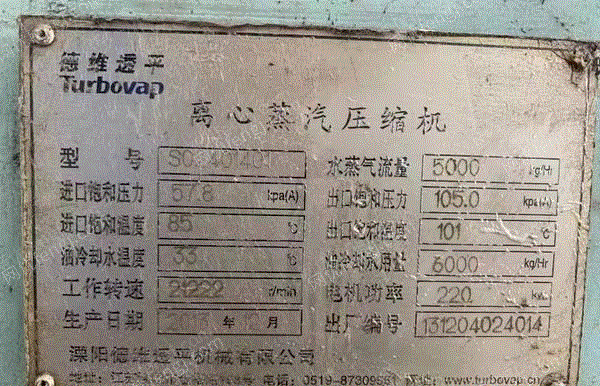 德维透平
Turbovap
离心蒸汽压缩机
型 号 水蒸气流量 5000 kg/Hr
进口饱和压力 57.8 kpa(A) 出口饱和压力 105.0 kpa(A)
进口饱和温度 85 ℃ 出口饱和温度 101 ℃
油冷却水温度 33 ℃ 油冷却水用量 6000 kg/Hr
工作转速 21222 r/min 电机功率 220 kw
生产日期 年 月 出厂编号 131204024014
溧阳德维透平机械有限公司
地址: 电话: 0519-87309551 www.turbovap.cn